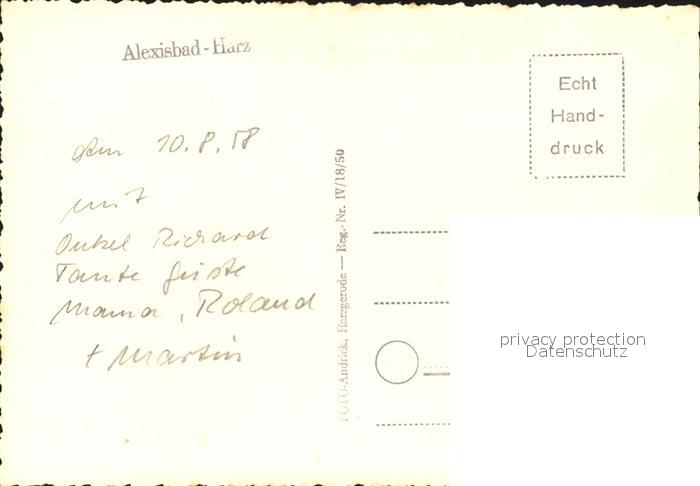 Alexisbad - Harz
Echt
Hand-
druck
den 10.8.58
mit
Onkel Richard
Tante Juste
Mama, Roland
+ Martin
FOTO-Andrick, Harzgerode — Reg.-Nr. IV/18/50
privacy protection
Datenschutz